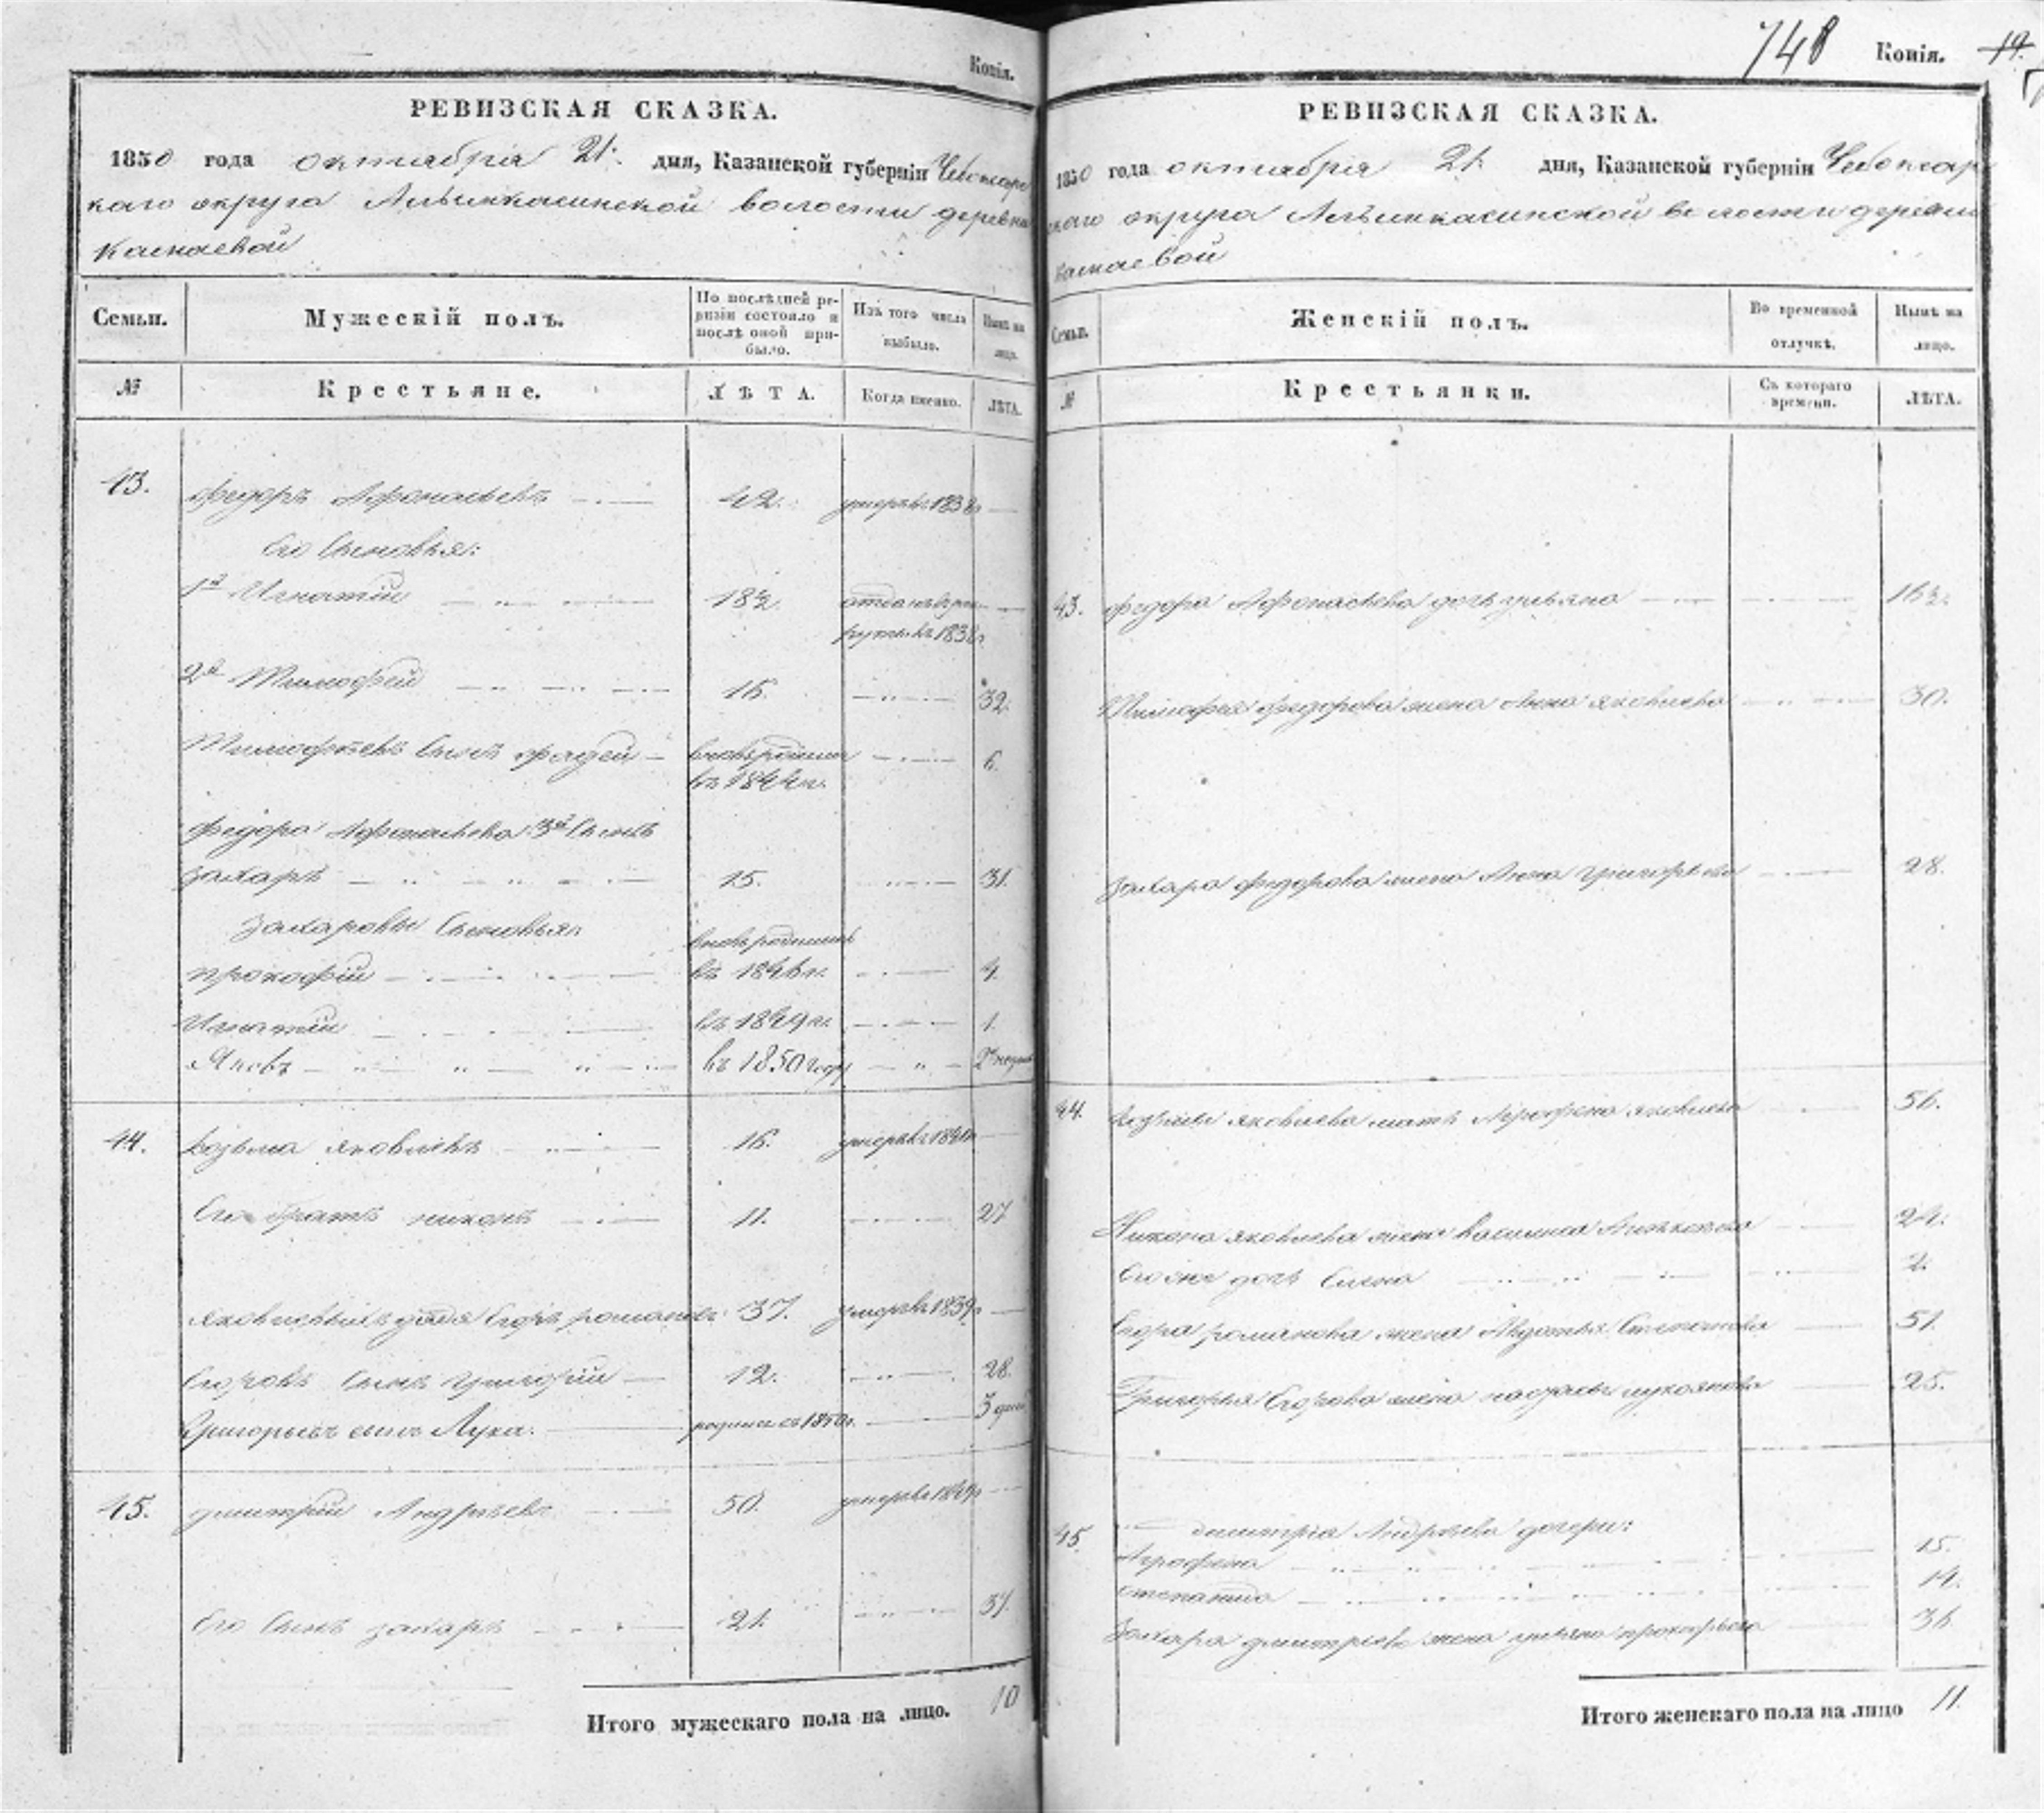 Копія.
РЕВИЗСКАЯ СКАЗКА.
1850 года октября 21. дня, Казанской губерніи Чебоксар
каго округа волости деревни
Каскаевой
Семьи.
Мужескій полъ.
По послѣдней ре-
визіи состояло и
послѣ оной при-
было.
Изъ того числа
выбыло.
Нынѣ на
лицо.
№
Крестьяне.
ЛѢТА.
Когда именно.
ЛѢТА.
43. Федоръ Афонасьевъ 42. умеръ въ 1838г
Его Сыновья:
1й Игнатій 18½. отданъ въ рек
руты въ 1838г
2й Тимофей 16. 32.
Тимофеевъ Сынъ вновь рожденъ 6.
въ 1844г.
Федора Афонасьева 3й Сынъ
Захаръ 15. 31.
Захаровы Сыновья:
вновь родились
Прокофій въ 1846г. 4.
Игнатій въ 1849г. 1.
Яковъ въ 1850 году 2 недѣли
44. Козьма Яковлевъ 16. умеръ въ 1840г
Его братъ Никонъ 11. 27
дядя Егоръ Романовъ 37. умеръ въ 1839г
Егоровъ Сынъ Григорій 12. 28.
Григорьевъ сынъ Лука. родился въ 1850г. 3 дней
45. Дмитрій Андреевъ 50. умеръ въ
Его Сынъ Захаръ 21. 37.
Итого мужескаго пола на лицо. 10
748 Копія. 19.
РЕВИЗСКАЯ СКАЗКА.
1850 года октября 21. дня, Казанской губерніи Чебоксар
скаго округа волости деревни
Каскаевой
Семьи.
Женскій полъ.
Во временной
отлучкѣ.
Нынѣ на
лицо.
№
Крестьянки.
Съ котораго
времени.
ЛѢТА.
43. Федора Афонасьева дочь Ульяна 16½.
Тимофея Федорова жена Анна Яковлева 30.
Захара Федорова жена Анна Григорьева 28.
44. Козьмы Яковлева мать Аграфена Яковлева 56.
Никона Яковлева жена Василиса 24.
Его же дочь Елена 2.
Егора Романова жена Авдотья Степанова 51.
Григорья Егорова жена Лукоянова 25.
45. Дмитрія Андреева дочери:
Аграфена 15.
Степанида 14.
Захара Дмитріева жена Ульяна Прокофьева 36
Итого женскаго пола на лицо 11.